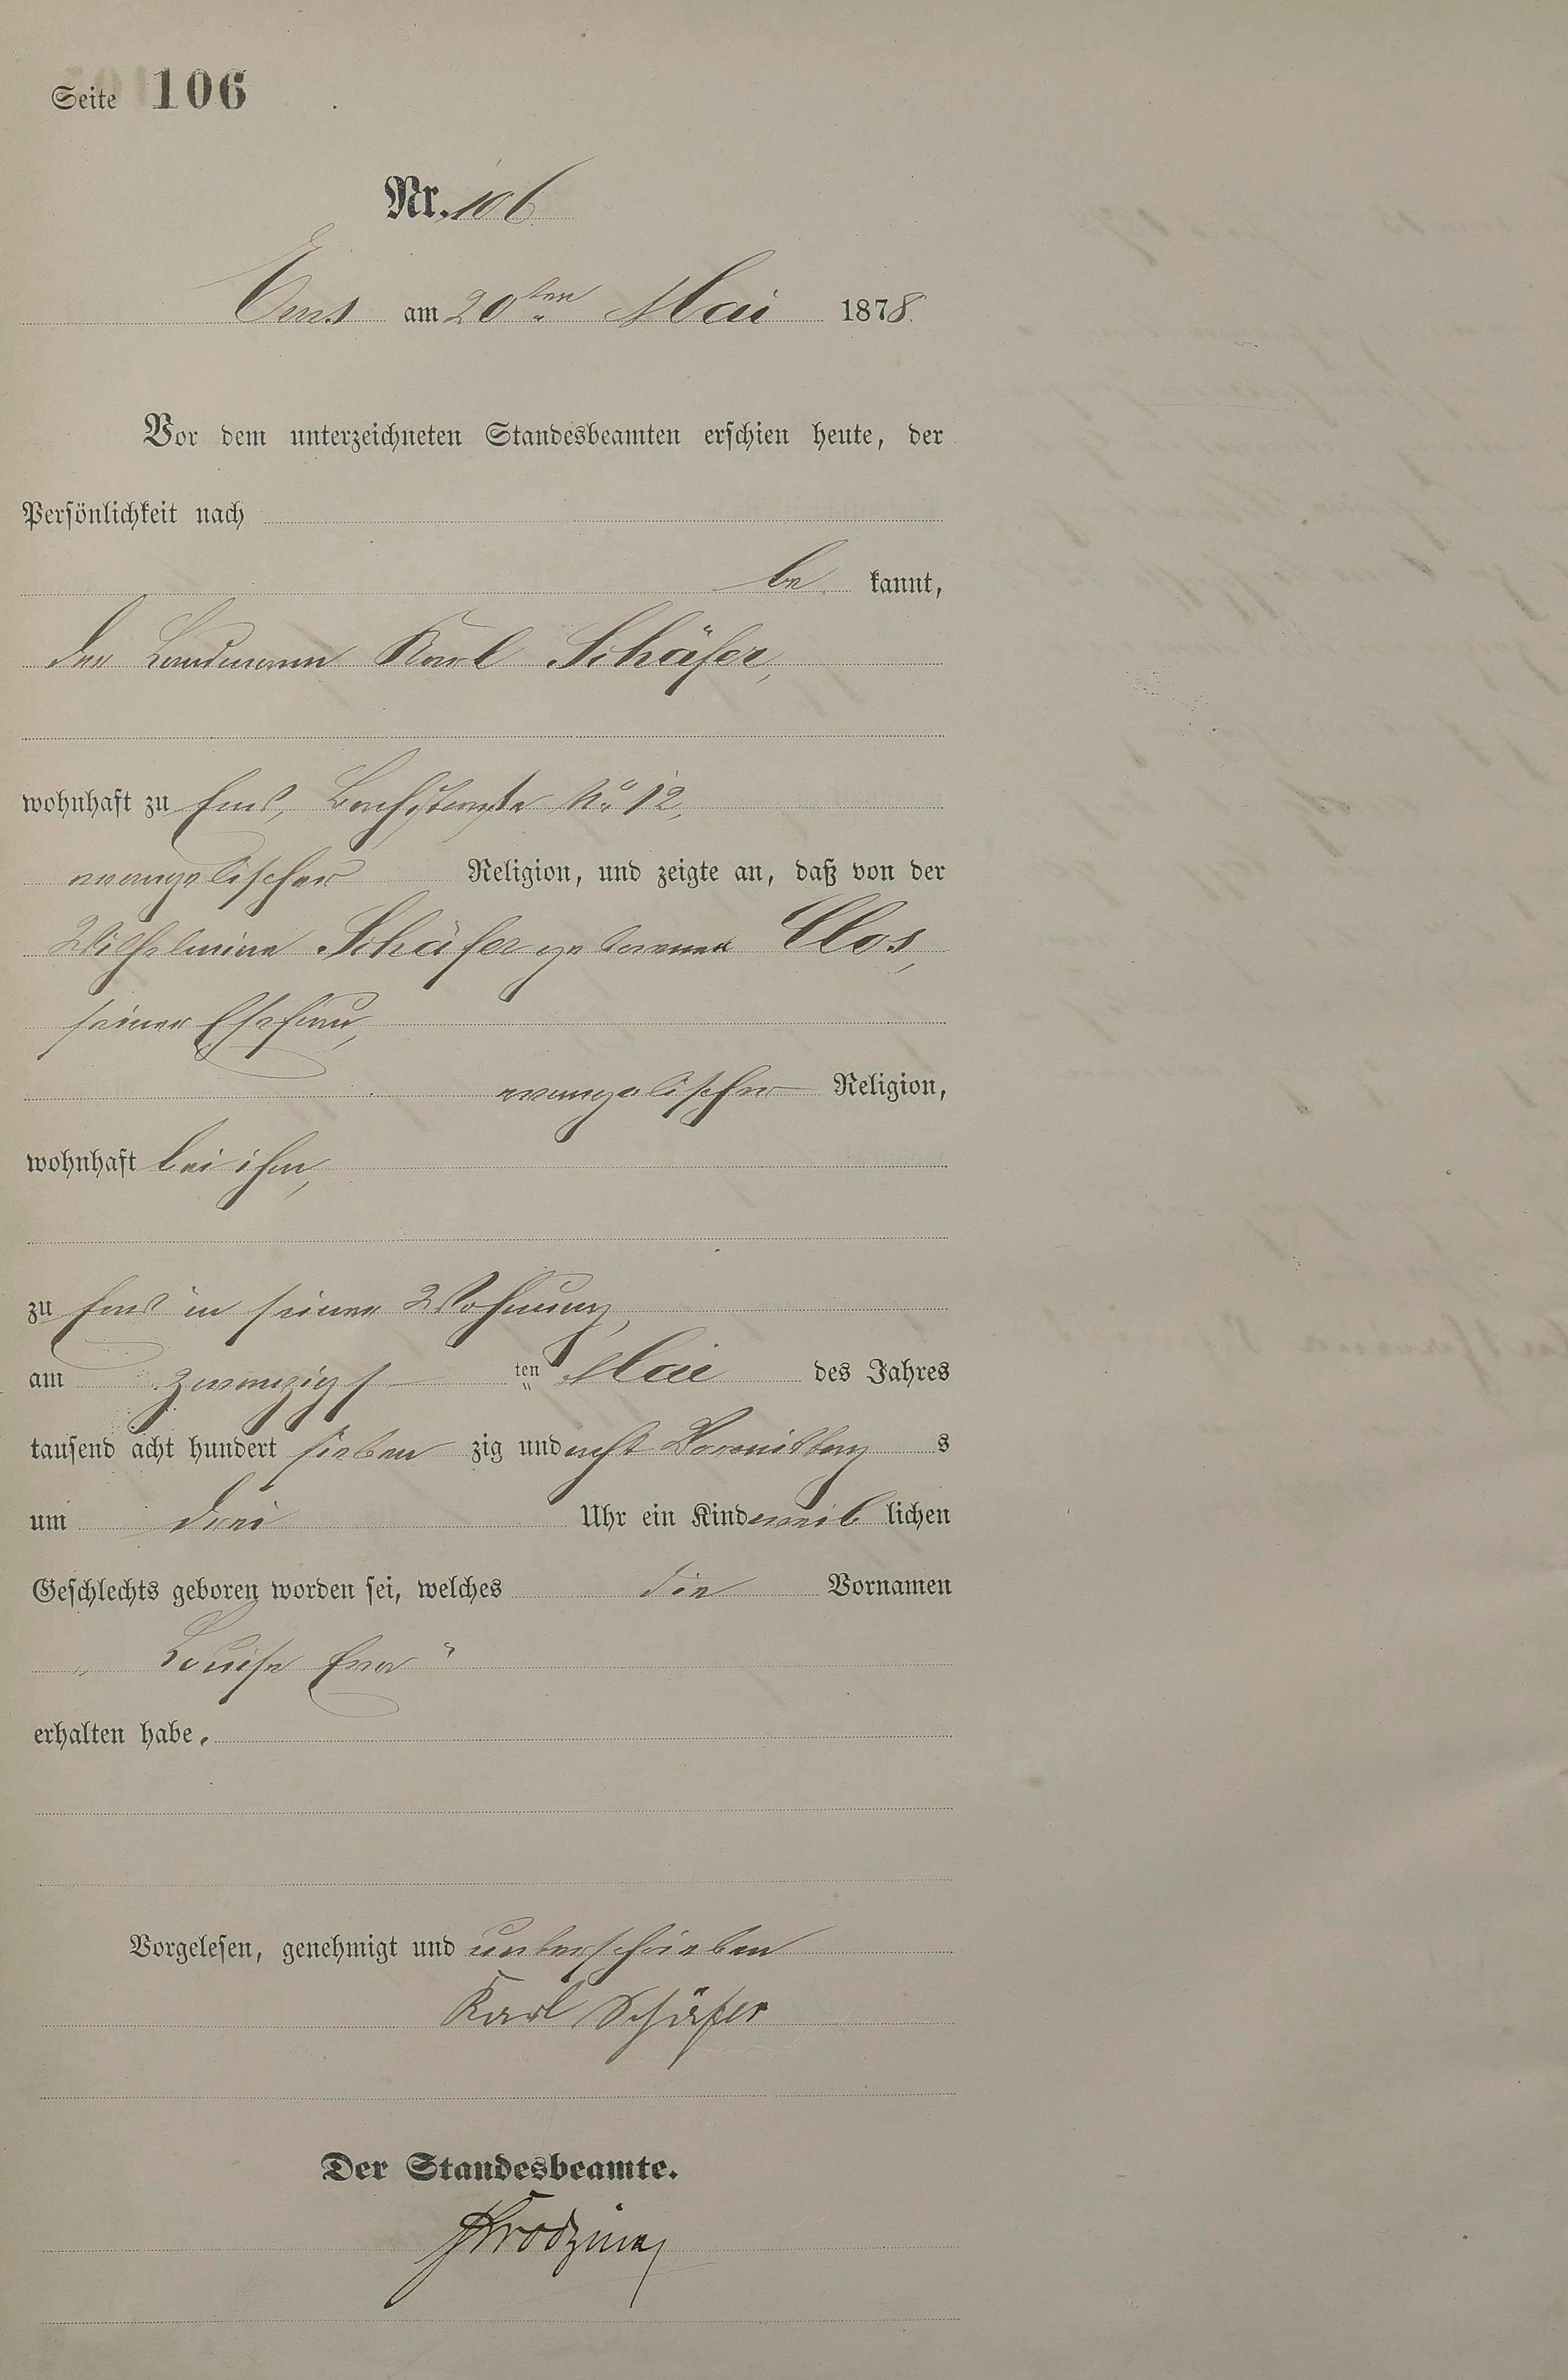 Seite 106
Nr. 106
Ems am 20ten Mai 1878.
Vor dem unterzeichneten Standesbeamten erschien heute, der
Persönlichkeit nach
be kannt,
der Landmann Karl Schäfer,
wohnhaft zu Ems, Bachstraße No 12,
evangelischer Religion, und zeigte an, daß von der
Wilhelmine Schäfer geborenen Clos,
seiner Ehefrau,
evangelischer Religion,
wohnhaft bei ihm,
zu Ems in seiner Wohnung,
am zwanzigs ten Mai des Jahres
tausend acht hundert sieben zig und acht Vormittag s
um drei Uhr ein Kind weib lichen
Geschlechts geboren worden sei, welches die Vornamen
„Louise Eva“
erhalten habe.
Vorgelesen, genehmigt und unterschrieben
Karl Schäfer
Der Standesbeamte.